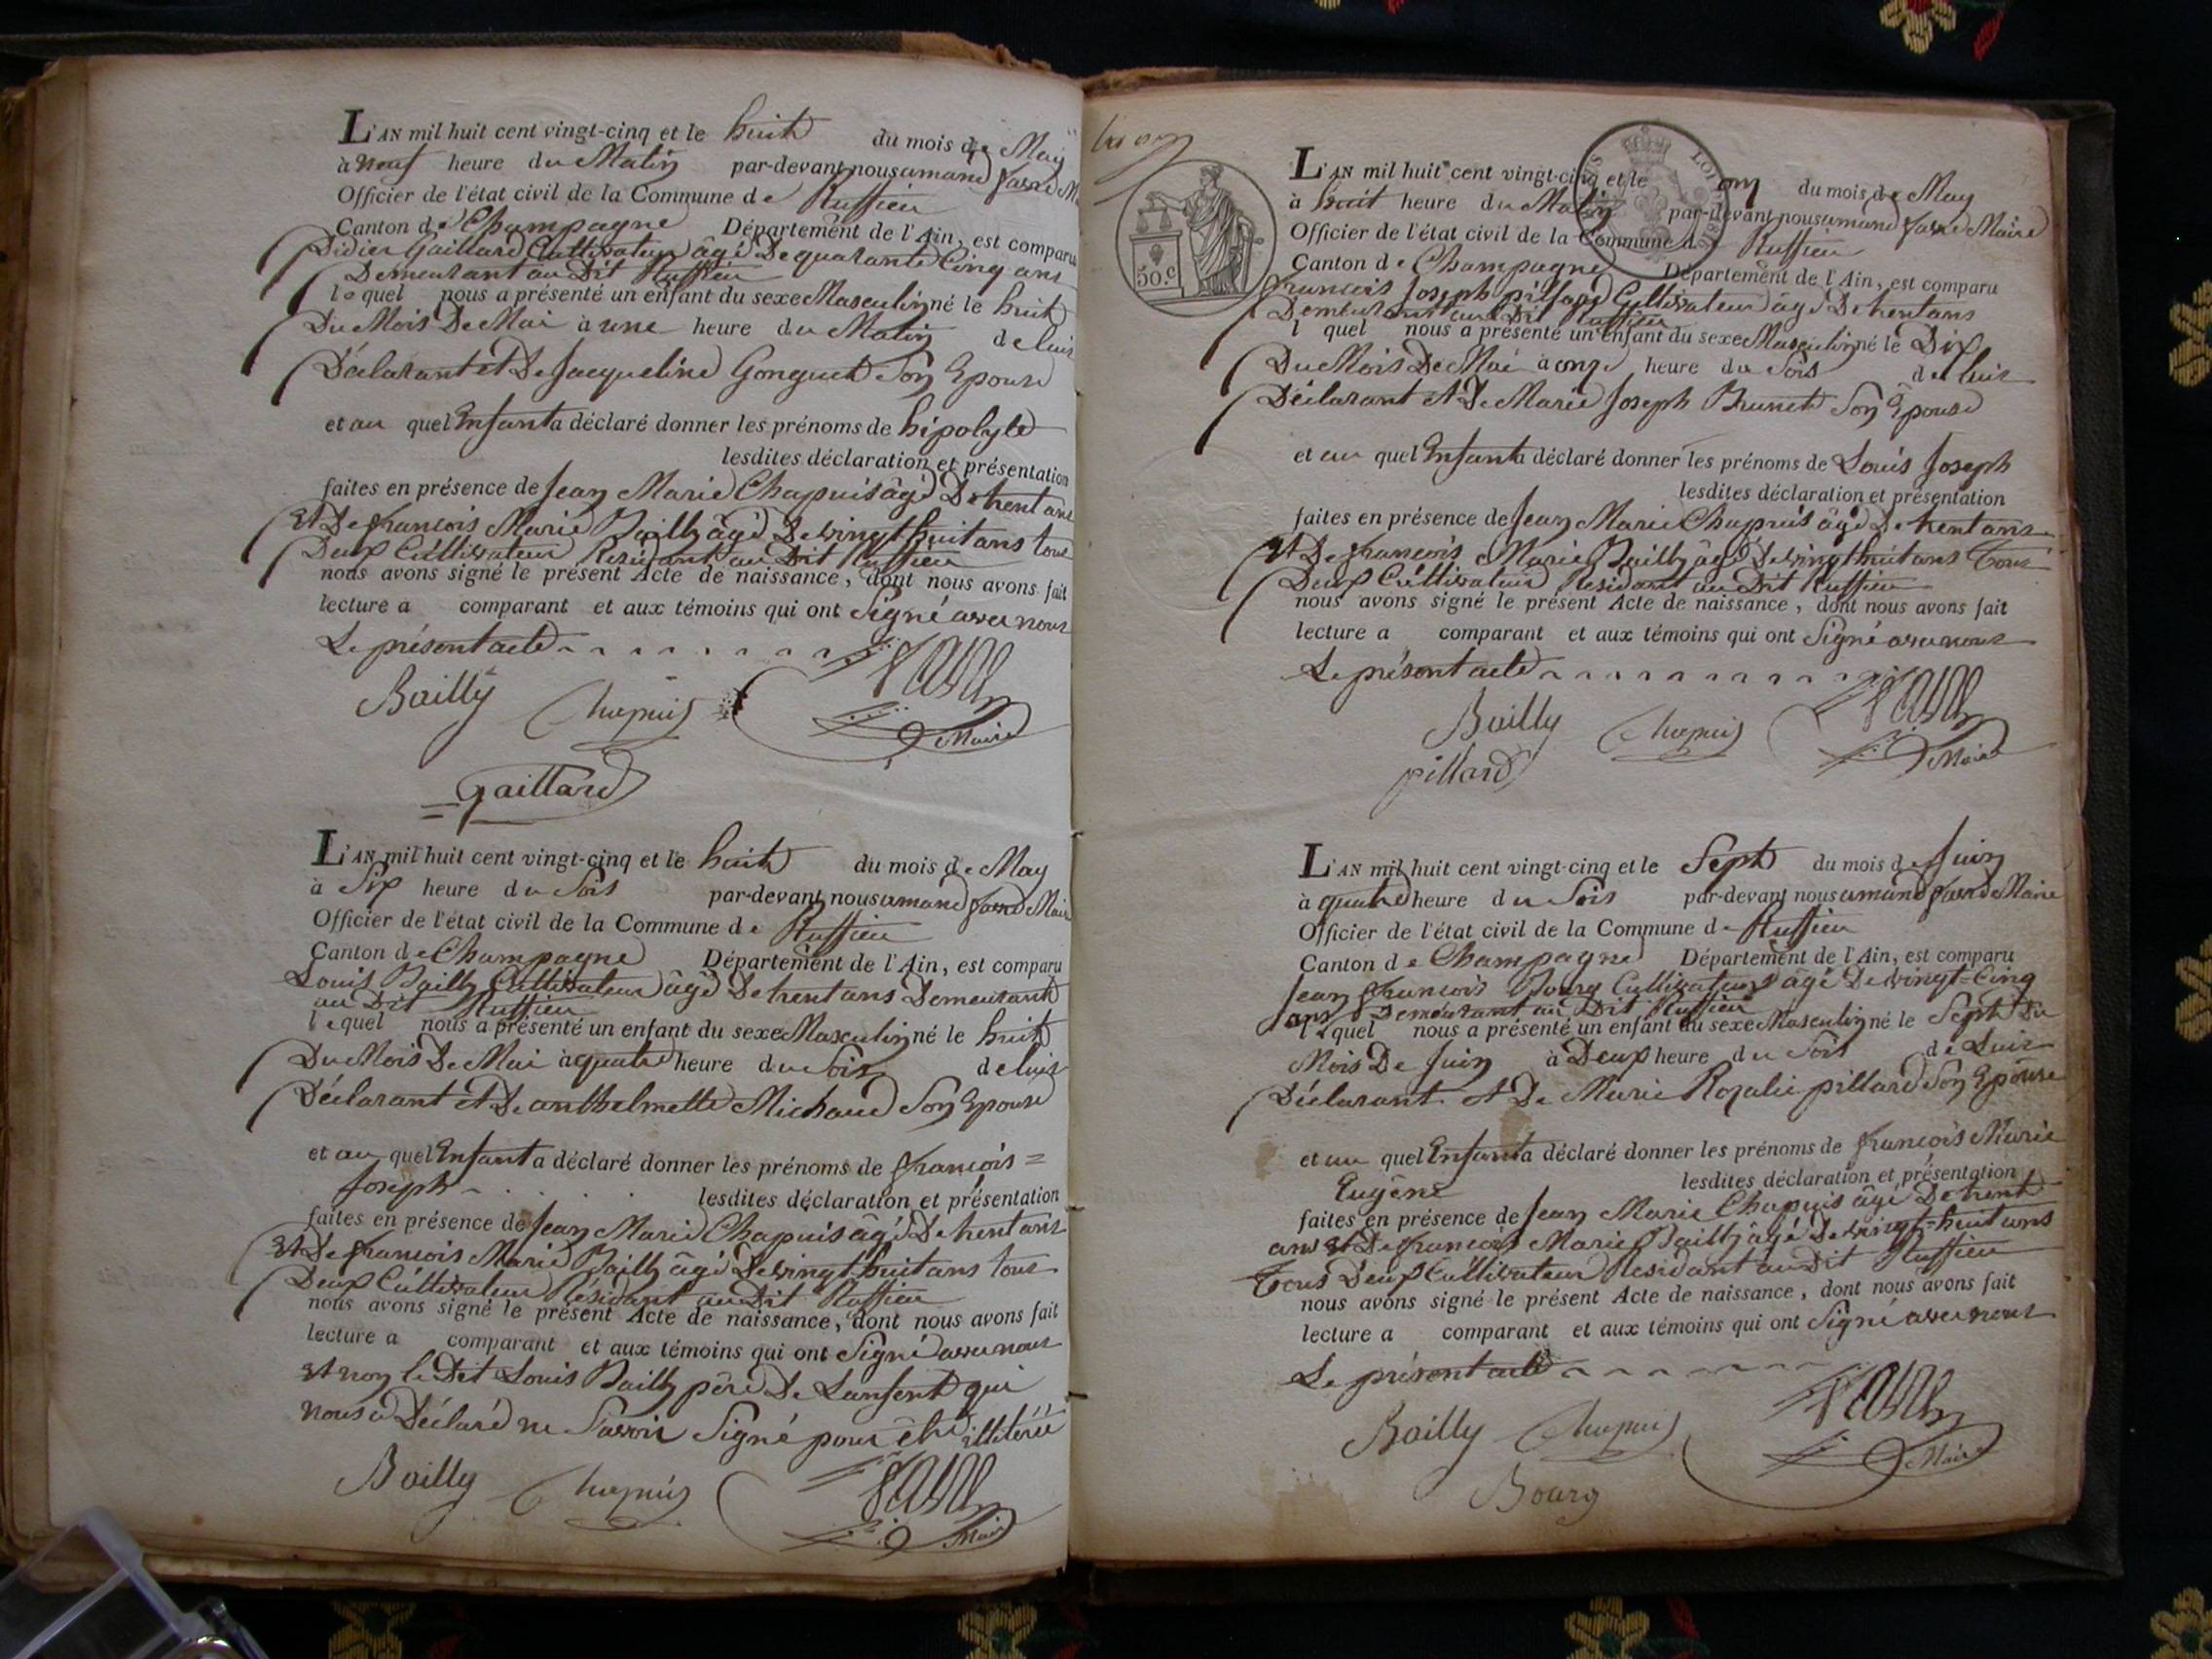 L'AN mil huit cent vingt-cinq et le huit du mois de May
à neuf heure du Matin par-devant nous amand favre M
Officier de l'état civil de la Commune de Ruffieu
Canton de Champagne Département de l'Ain, est comparu
Didier Gaillard Cultivateur âgé De quarante Cinq ans
Demeurant au Dit Ruffieu
lequel nous a présenté un enfant du sexe Masculin né le huit
Du Mois De Mai à une heure du Matin de luis
Déclarant et De Jacqueline Gonguet Son Epouse
et au quel Enfant a déclaré donner les prénoms de hipolyte
lesdites déclaration et présentation
faites en présence de Jean Marie Chapuis âgé De trent ans
Et De francois Marie Bailly âgé De vingt huit ans tous
Deux Cultivateur Résidant au Dit Ruffieu
nous avons signé le présent Acte de naissance, dont nous avons fait
lecture a comparant et aux témoins qui ont Signé avec nous
Le présent acte
Bailly Chapuis favre Maire
Gaillard
L'AN mil huit cent vingt-cinq et le huit du mois de May
à Six heure du Soir par-devant nous amand favre Maire
Officier de l'état civil de la Commune de Ruffieu
Canton de Champagne Département de l'Ain, est comparu
Louis Bailly Cultivateur âgé De trent ans Demeurant
au Dit Ruffieu
lequel nous a présenté un enfant du sexe Masculin né le huit
Du Mois De Mai à quatre heure du Soir de luis
Déclarant et De anthelmette Michaud Son Epouse
et au quel Enfant a déclaré donner les prénoms de françois =
Joseph
lesdites déclaration et présentation
faites en présence de Jean Marie Chapuis âgé De trent ans
Et De francois Marie Bailly âgé De vingt huit ans tous
Deux Cultivateur Résidant au Dit Ruffieu
nous avons signé le présent Acte de naissance, dont nous avons fait
lecture a comparant et aux témoins qui ont Signé avec nous
Et non le Dit Louis Bailly père De Lanfent qui
nous a Déclaré ne Savoir Signé pour être illitérée
Bailly Chapuis favre Maire
50.c
LOI 1816
L'AN mil huit cent vingt-cinq et le onz du mois de May
à huit heure du Matin par-devant nous amand favre Maire
Officier de l'état civil de la Commune de Ruffieu
Canton de Champagne Département de l'Ain, est comparu
francois Joseph pillard Cultivateur âgé De trent ans
Demeurant au Dit Ruffieu
l quel nous a présenté un enfant du sexe Masculin né le Dix
Du Mois De Mai à onze heure du Soir de luis
Déclarant et De Marie Joseph Brunet Son Epouse
et au quel Enfant a déclaré donner les prénoms de Louis Joseph
lesdites déclaration et présentation
faites en présence de Jean Marie Chapuis âgé De trent ans
Et De francois Marie Bailly âgé De vingt huit ans Tous
Deux Cultivateur Résidant au Dit Ruffieu
nous avons signé le présent Acte de naissance, dont nous avons fait
lecture a comparant et aux témoins qui ont Signé avec nous
Le présent acte
Bailly Chapuis favre Maire
pillard
L'AN mil huit cent vingt-cinq et le Sept du mois de Juin
à quatre heure du Soir par-devant nous amand favre Maire
Officier de l'état civil de la Commune de Ruffieu
Canton de Champagne Département de l'Ain, est comparu
Jean francois Bourg Cultivateur âgé De vingt-Cinq
ans Demeurant au Dit Ruffieu
lequel nous a présenté un enfant du sexe Masculin né le Sept Du
Mois De Juin à Deux heure du Soir de Luis
Déclarant et De Marie Rosalie pillard Son Epouse
et au quel Enfant a déclaré donner les prénoms de francois Marie
Eugène
lesdites déclaration et présentation
faites en présence de Jean Marie Chapuis âgé De trent
ans et De francois Marie Bailly âgé De vingt-huit ans
Tous Deux Cultivateur Résidant au Dit Ruffieu
nous avons signé le présent Acte de naissance, dont nous avons fait
lecture a comparant et aux témoins qui ont Signé avec nous
Le présent acte
Bailly Chapuis favre Maire
Bourg